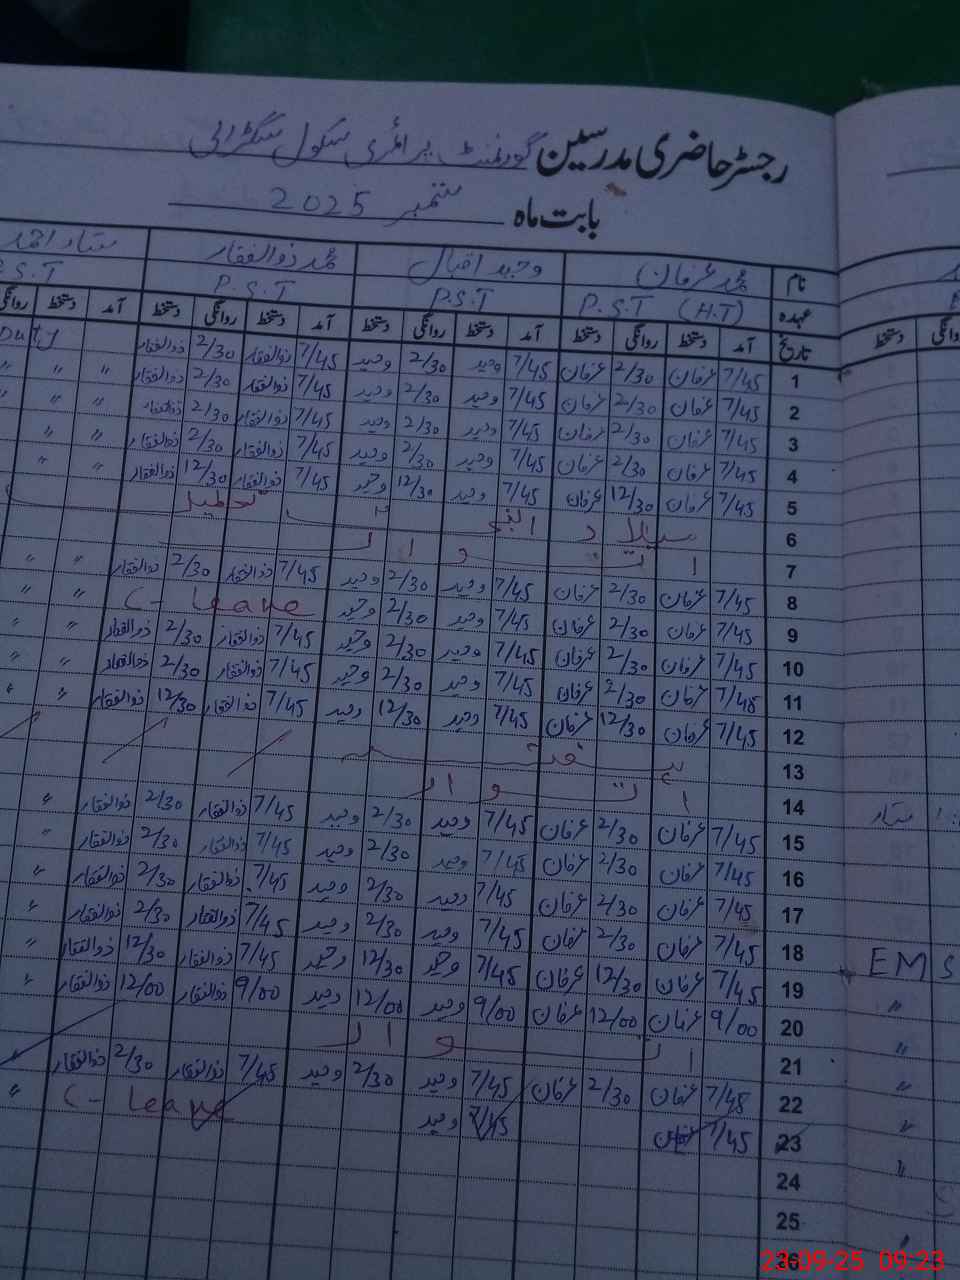 رجسٹر حاضری مدرسین گورنمنٹ پرائمری سکول
بابت ماہ ستمبر 2025
نام محمد عرفان وحید اقبال محمد ذوالفقار احمد
عہدہ P.S.T (H.T) P.S.T P.S.T P.S.T
تاریخ آمد دستخط روانگی دستخط آمد دستخط روانگی دستخط آمد دستخط روانگی دستخط آمد دستخط روانگی دستخط
1 7/45 عرفان 2/30 عرفان 7/45 وحید 2/30 وحید 7/45 ذوالفقار 2/30 ذوالفقار Duty
2 7/45 عرفان 2/30 عرفان 7/45 وحید 2/30 وحید 7/45 ذوالفقار 2/30 ذوالفقار " " "
3 7/45 عرفان 2/30 عرفان 7/45 وحید 2/30 وحید 7/45 ذوالفقار 2/30 ذوالفقار " " "
4 7/45 عرفان 2/30 عرفان 7/45 وحید 2/30 وحید 7/45 ذوالفقار 2/30 ذوالفقار " "
5 7/45 عرفان 12/30 عرفان 7/45 وحید 12/30 وحید 7/45 ذوالفقار 12/30 ذوالفقار " "
6 میلاد النبی تعطیل
7 اتوار
8 7/45 عرفان 2/30 عرفان 7/45 وحید 2/30 وحید 7/45 ذوالفقار 2/30 ذوالفقار " "
9 7/45 عرفان 2/30 عرفان 7/45 وحید 2/30 وحید C- leave " "
10 7/45 عرفان 2/30 عرفان 7/45 وحید 2/30 وحید 7/45 ذوالفقار 2/30 ذوالفقار " "
11 7/45 عرفان 2/30 عرفان 7/45 وحید 2/30 وحید 7/45 ذوالفقار 2/30 ذوالفقار " "
12 7/45 عرفان 12/30 عرفان 7/45 وحید 12/30 وحید 7/45 ذوالفقار 12/30 ذوالفقار " "
13 ہفتہ
14 اتوار
15 7/45 عرفان 2/30 عرفان 7/45 وحید 2/30 وحید 7/45 ذوالفقار 2/30 ذوالفقار "
16 7/45 عرفان 2/30 عرفان 7/45 وحید 2/30 وحید 7/45 ذوالفقار 2/30 ذوالفقار "
17 7/45 عرفان 2/30 عرفان 7/45 وحید 2/30 وحید 7/45 ذوالفقار 2/30 ذوالفقار "
18 7/45 عرفان 2/30 عرفان 7/45 وحید 2/30 وحید 7/45 ذوالفقار 2/30 ذوالفقار "
19 7/45 عرفان 12/30 عرفان 7/45 وحید 12/30 وحید 7/45 ذوالفقار 12/30 ذوالفقار "
20 9/00 عرفان 12/00 عرفان 9/00 وحید 12/00 وحید 9/00 ذوالفقار 12/00 ذوالفقار "
21 اتوار
22 7/45 عرفان 2/30 عرفان 7/45 وحید 2/30 وحید 7/45 ذوالفقار 2/30 ذوالفقار
23 7/45 عرفان 7/45 وحید C- leave "
24
25
26
روانگی دستخط
EMS
"
"
"
"
"
"
23-09-25 09:23